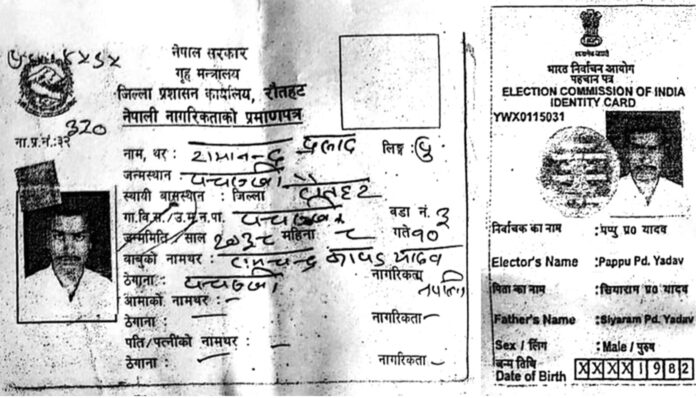 नेपाल सरकार
गृह मन्त्रालय
जिल्ला प्रशासन कार्यालय, रौतहट
नेपाली नागरिकताको प्रमाणपत्र
ना.प्र.नं.: ३२
320
नाम, थर :
लिङ्ग : पु
जन्मस्थान :
स्थायी बासस्थान : जिल्ला रौतहट
गा.वि.स./उ.म.न.पा.
वडा नं. ३
जन्ममिति / साल २०३८ महिना ८ गते १०
बाबुको नामथर :
ठेगाना :
नागरिकता
नेपाली
आमाको नामथर : –
ठेगाना : –
नागरिकता –
पति/पत्नीको नामथर : –
ठेगाना : –
नागरिकता –
भारत निर्वाचन आयोग
पहचान पत्र
ELECTION COMMISSION OF INDIA
IDENTITY CARD
YWX0115031
निर्वाचक का नाम : पप्पु प्र० यादव
Elector's Name : Pappu Pd. Yadav
पिता का नाम : सियाराम प्र० यादव
Father's Name : Siyaram Pd. Yadav
Sex / लिंग : Male / पुरुष
जन्म तिथि
Date of Birth XXXX1982